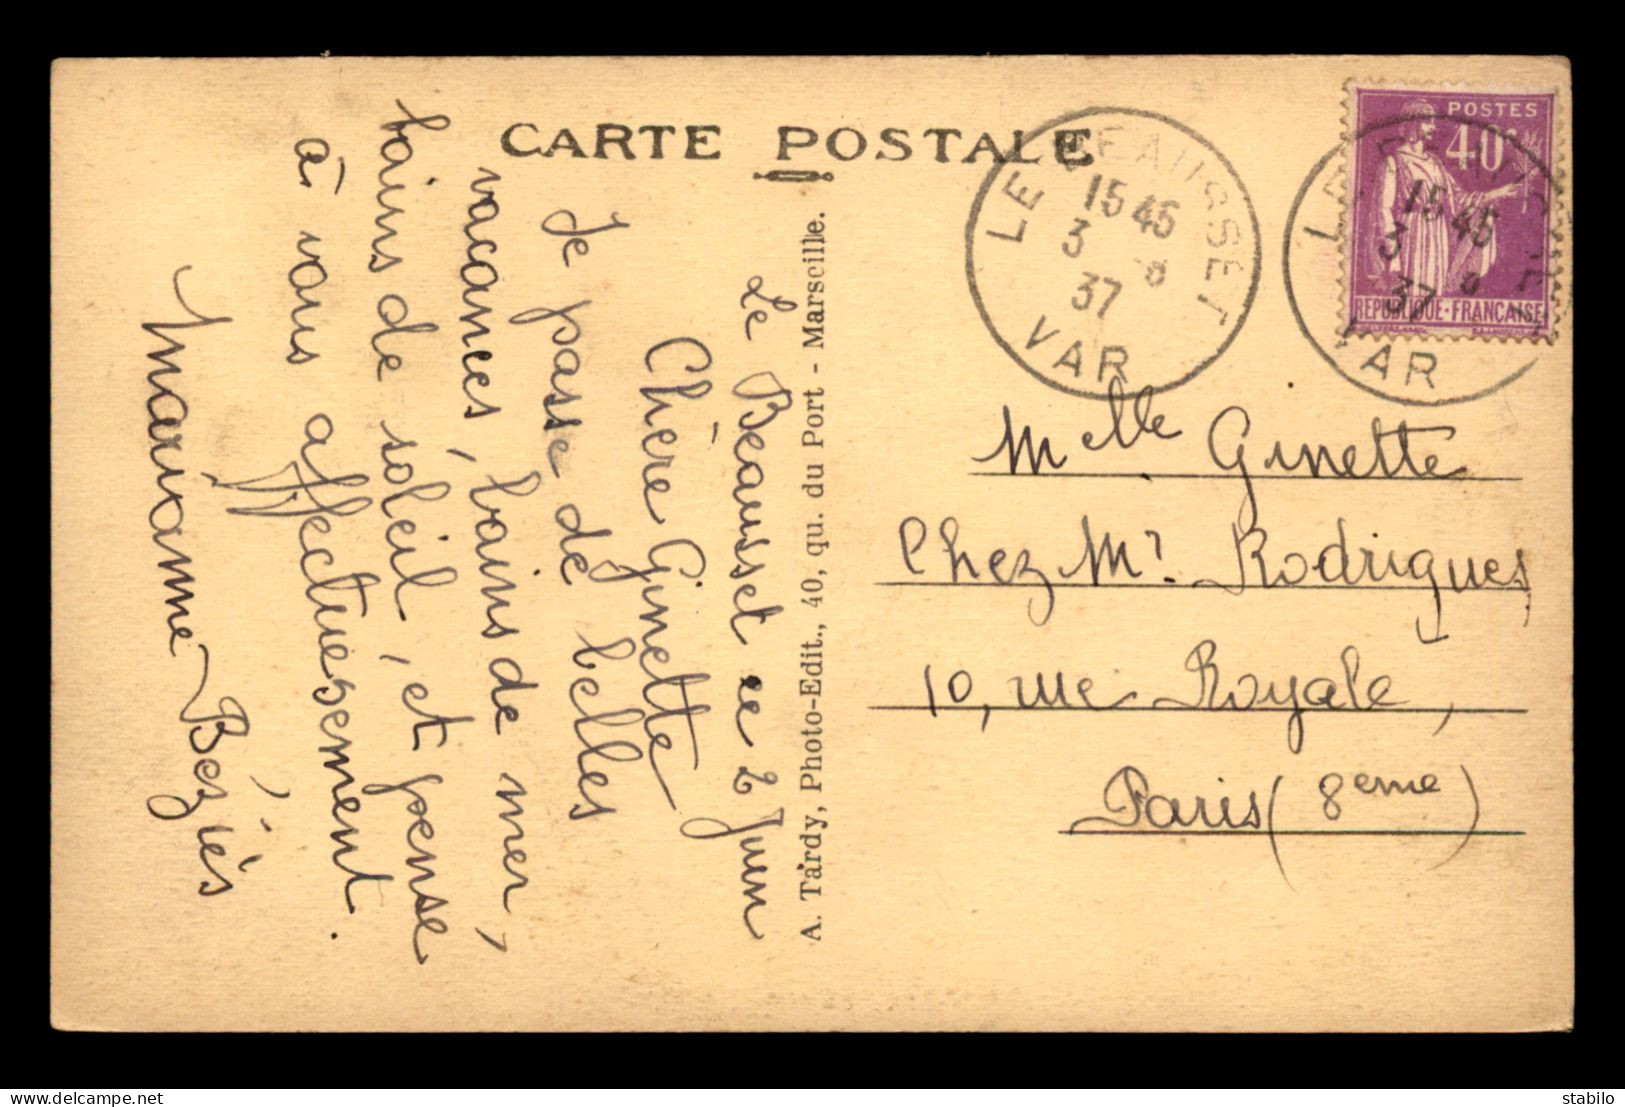 CARTE POSTALE
Le Beausset ce 2 Juin
Chère Ginette
Je passe de belles
vacances, bains de mer,
bains de soleil, et pense
à vous affectueusement.
Marianne Béziès
A. Tardy, Photo-Edit., 40, qu. du Port - Marseille.
LE BEAUSSET
15 45
3
37
VAR
POSTES
40c
REPUBLIQUE·FRANÇAISE
LE BEAUSSET
15 45
3
37
VAR
Melle Ginette
Chez Mr. Rodrigues
10, rue Royale,
Paris (8eme)
delcampe.net
stabilo